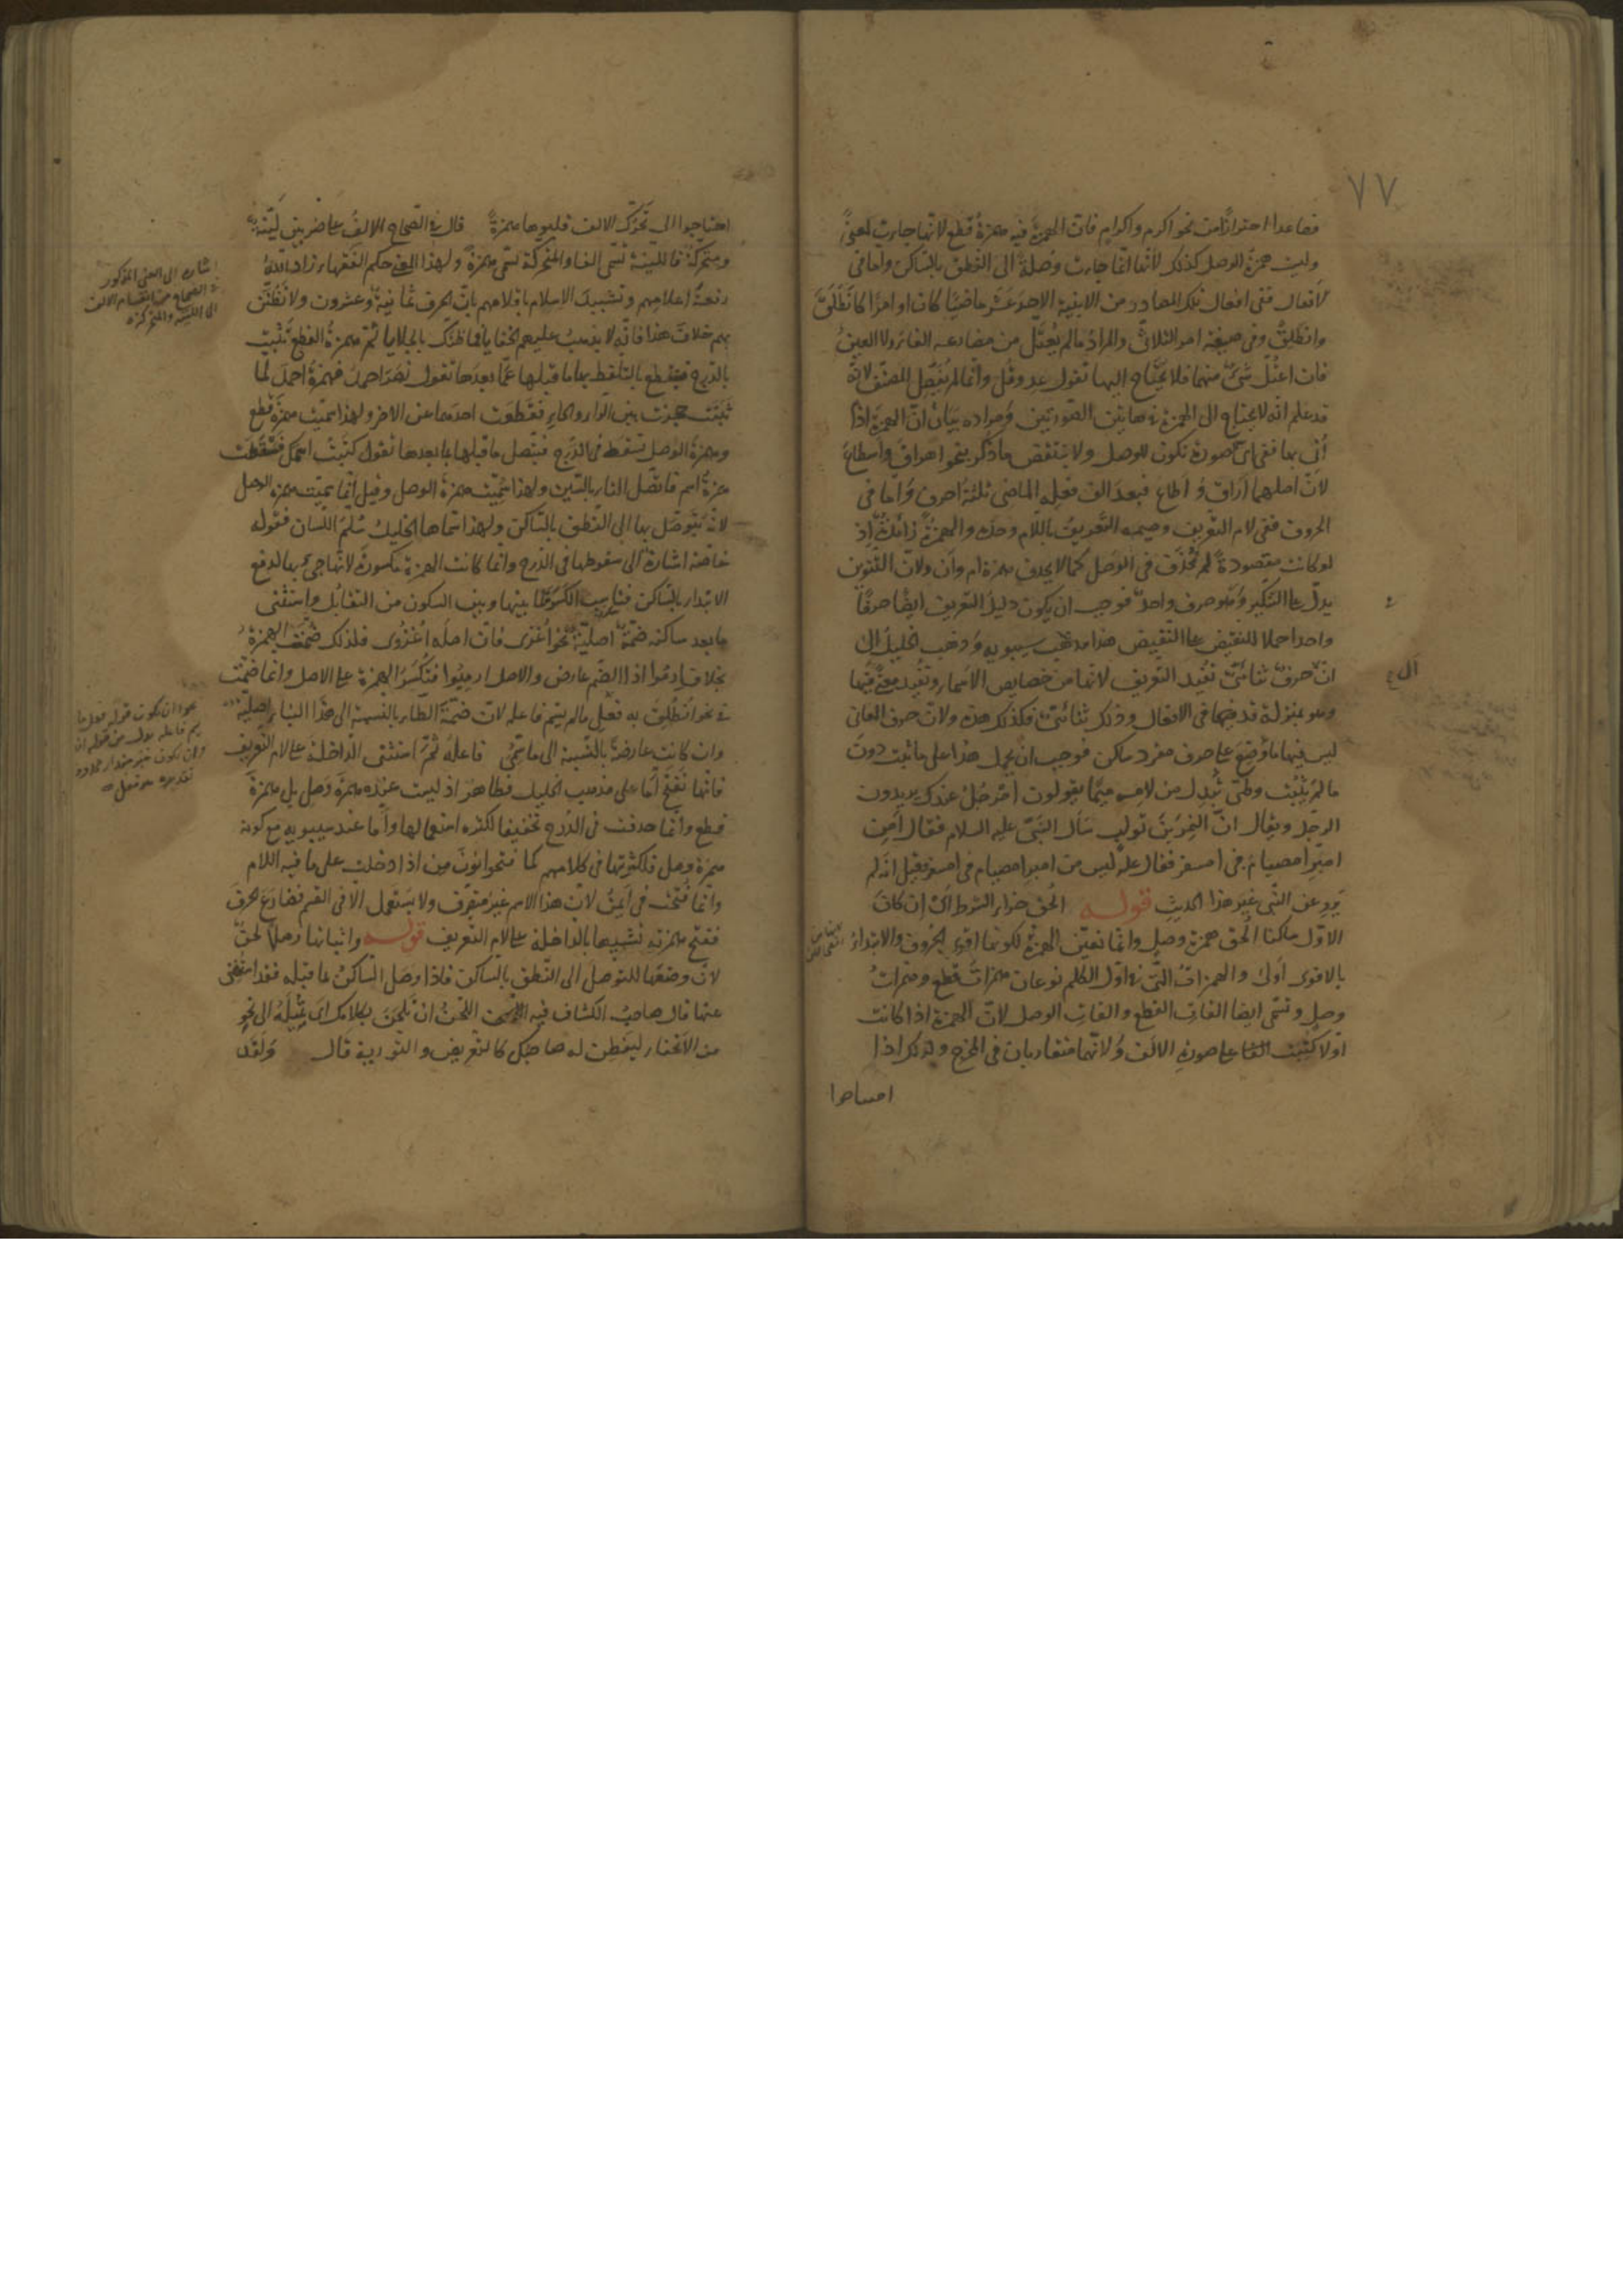 ٧٧
فصاعدا احترازا من نحو اكرم واكرام فان الهمزة فيه همزة قطع لانها جاءت لمعنى
وليت همزة الوصل كذلك لانها انما جاءت وصلة الى النطق بالساكن واما فى
الافعال ففى افعال تلك المصادر من الابنية الاحد عشر ماضيا كان او امرا كانطلق
وانطلق وفى صيغة امر الثلاثى والمراد مالم يعتل من مضارعه الفاء ولا العين
فان اعتل شئ منهما فلا يحتاج اليها تقول عد وقل وانما لم يفصل المصنف لانه
قد علم انه لا يحتاج الى الهمزة فى هاتين الصورتين ومراده بيان ان الهمزة اذا
أتى بها ففى اى صورة تكون للوصل ولا ينتقض ما ذكر بنحو اهراق واسطاع
لان اصلهما اراق و اطاع فبعد الف فعله الماضى ثلثة احرف واما فى
الحروف ففى لام التعريف وميمه التعريف باللام وحده والهمزة زائدة اذ
لو كانت مقصودة لم تحذف فى الوصل كما لا يحذف همزة ام وان ولان التنوين
يدل على التنكير وهو حرف واحد فوجب ان يكون دليل التعريف ايضا حرفا
واحدا حملا للنقيض على النقيض هذا مذهب سيبويه وذهب الخليل الى
ال
ان حرف ثنائى تفيد التعريف لانها من خصايص الاسماء وتفيد معنى فيها
وهو بمنزلة قد فيها فى الافعال وذلك ثنائى فكذلك هذه ولان حرف المعانى
ليس فيها ما وضع على حرف مفرد ساكن فوجب ان يحمل هذا على ما ثبت دون
مالم يثبت وطئ تبدل من لامه ميما يقولون امرجل عندك يريدون
الرجل ويقال ان النمر بن تولب سأل النبى عليه السلام فقال امن
امبر امصيام فى امسفر فقال عليه ليس من امبر امصيام فى امسفر فقيل انه لم
يرو عن النبى غير هذا الحديث قوله الحق جزاء الشرط اى ان كان
الاول ساكنا الحق همزة وصل وانما تعين الهمزة لكونها اقوى الحروف والابتداء
بالاقوى اولى والهمزات التى فى اول الكلم نوعان همزات قطع وهمزات
وصل وتسمى ايضا الفات القطع والفات الوصل لان الهمزة اذا كانت
اولا كتبت الفا على صورة الالف ولانهما متقاربان فى المخرج ولذلك اذا
احتاجوا
احتاجوا الى تحرك الالف قلبوها همزة قال فى الصحاح الالف على ضربين لينة
ومتحركة فاللينة تسمى الفا والمتحركة تسمى همزة ولهذا المعنى حكم الفقهاء زاد الله
رفعة اعلامهم وتشييد الاسلام باقلامهم بان الحرف ثمانية وعشرون ولا تظنن
بهم خلاف هذا فانه لا يذهب عليهم الخفايا فما ظنك بالجلايا ثم همزة القطع تثبت
بالدرج فينقطع بالتلفظ بها ما قبلها عما بعدها تقول نصر احمد فهمزة احمد لما
ثبتت حجزت بين الراء والحاء فقطعت احدهما عن الاخر ولهذا سميت همزة قطع
وهمزة الوصل تسقط فى الدرج فيتصل ما قبلها بما بعدها تقول كتبت اسمك فسقطت
همزة اسم فاتصل التاء بالسين ولهذا سميت همزة الوصل وقيل انما سميت همزة الوصل
لانه يتوصل بها الى النطق بالساكن ولهذا سماها الخليل سلم اللسان فقوله
خاصة اشارة الى سقوطها فى الدرج وانما كانت الهمزة مكسورة لانها جئ بها لدفع
الابتداء بالساكن فناسب الكسر لما بينها وبين السكون من التقابل واستثنى
ما بعد ساكنه ضمة اصلية نحو اغزى فان اصله اغزوى فلذلك ضمت الهمزة
بخلاف ارموا اذ الضم عارض والاصل ارميوا فتكسر الهمزة على الاصل وانما ضمت
فى نحو انطلق به فعل مالم يسم فاعله لان ضمة الطاء بالنسبة الى هذا البناء اصلية
وان كانت عارضة بالنسبة الى ما سمى فاعله ثم استثنى الداخلة على لام التعريف
فانها تفتح اما على مذهب الخليل فظاهر اذ ليست عنده همزة وصل بل همزة
قطع وانما حذفت فى الدرج تخفيفا لكثرة استعمالها واما عند سيبويه مع كونه
همزة وصل فلكثرتها فى كلامهم كما فتحوا نون من اذا دخلت على ما فيه اللام
وانما فتحت فى ايمن لان هذا الاسم غير متصرف ولا يستعمل الا فى القسم فضارع الحرف
ففتح همزته تشبيها بالداخلة على لام التعريف قوله واثباتها وصلا لحن
لان وضعها للتوصل الى النطق بالساكن فاذا وصل الساكن بما قبله فقد استغنى
عنها قال صاحب الكشاف فيه اللحن ان تلحن بكلامك اى تميله الى نحو
من الانحاء ليفطن له صاحبك كالتعريض والتورية قال ولقد
اشارة الى المعنى المذكور
فى الصحاح من انقسام الالف
الى اللينة والمتحركة